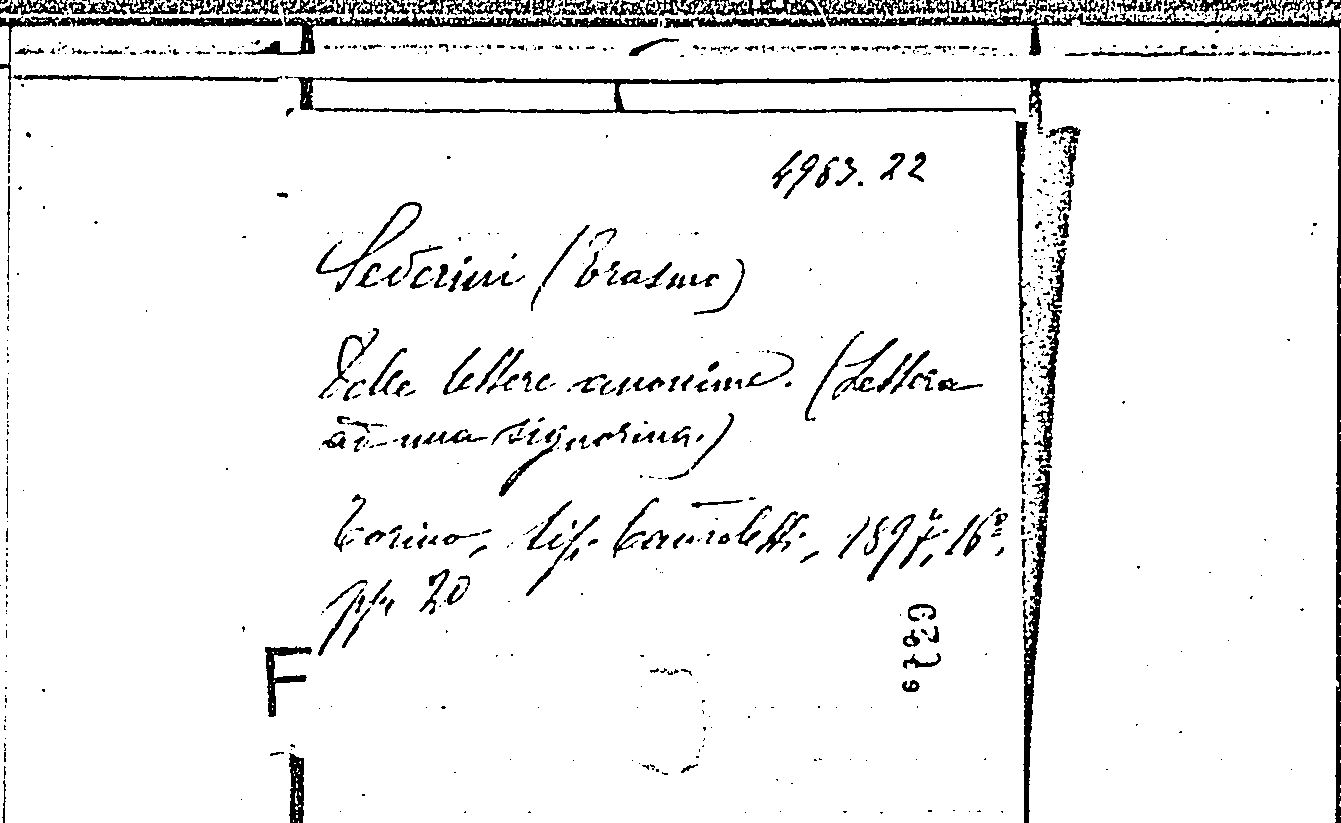 4963.22
Severini (Erasmo)
Delle lettere anonime. (Lettera
ad una signorina.)
Torino, tip. Camoletti, 1897, 16º,
pp. 20